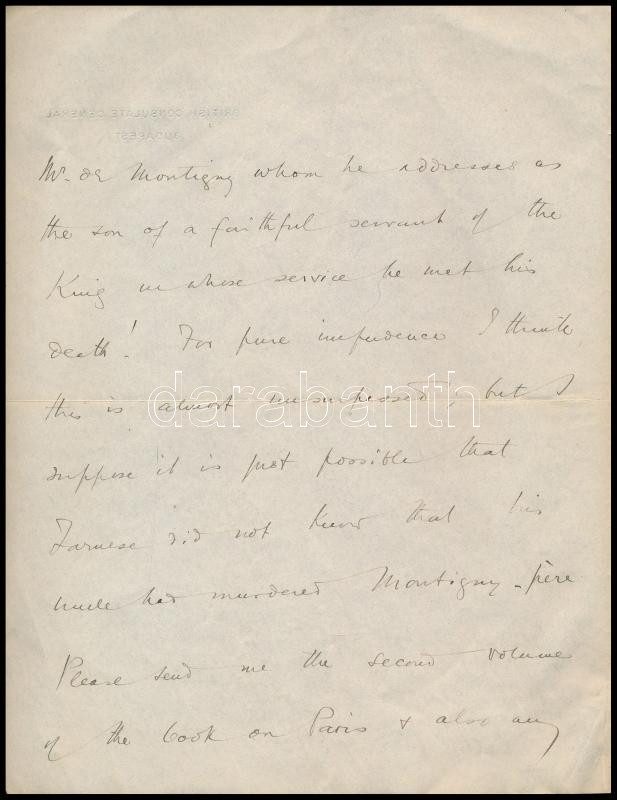 BRITISH CONSULATE GENERAL
BUDAPEST
Mr. de Montigny whom he addresses as
the son of a faithful servant of the
King in whose service he met his
death! For pure impudence I think
this is almost unsurpassed; but I
darabanth
suppose it is just possible that
Farnese did not know that his
uncle had murdered Montigny-père
Please send me the second volume
of the book on Paris & also any